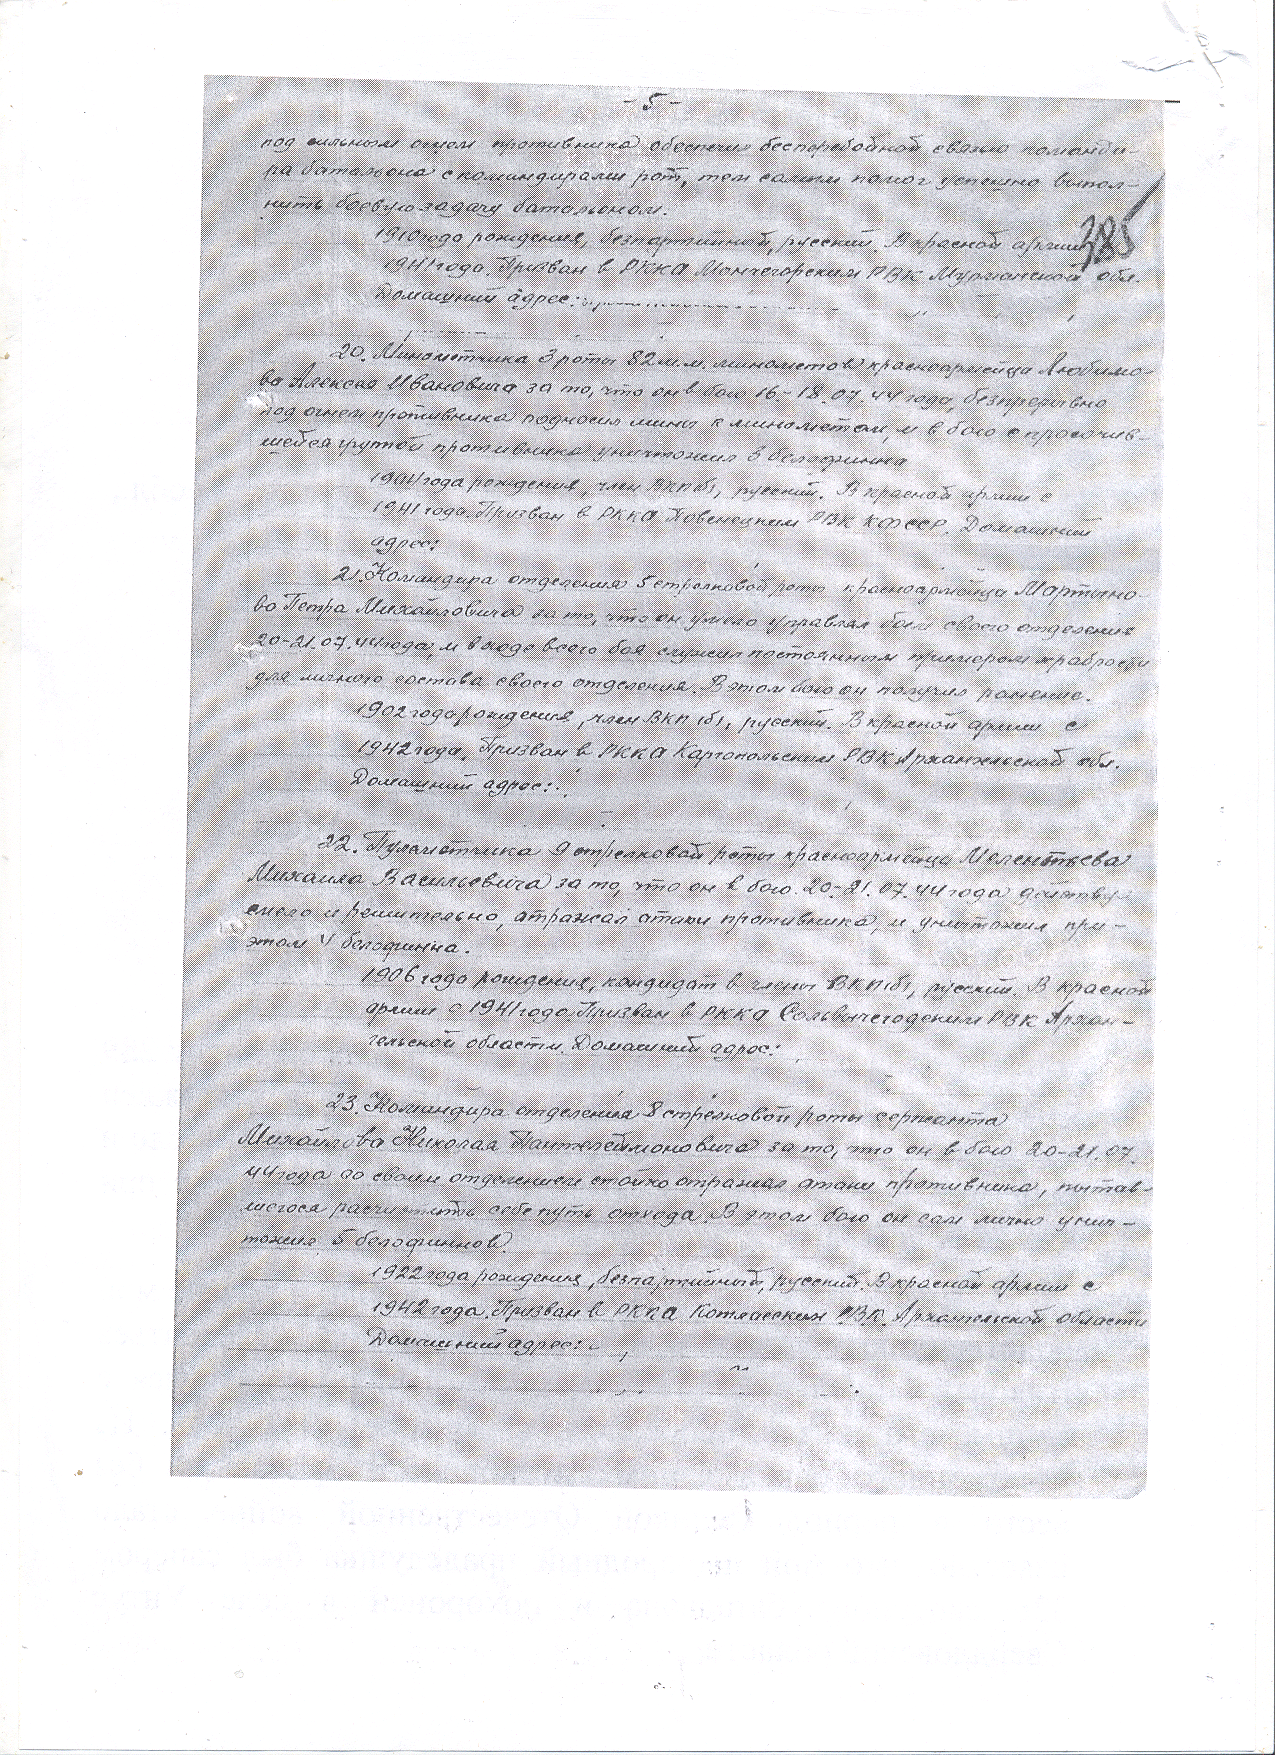 - 5 -
под сильным огнем противника обеспечил бесперебойной связью команди-
ра батальона с командирами рот, тем самым помог успешно выпол-
нить боевую задачу батальоном.
385
1910 года рождения, безпартийный, русский. В красной армии
1941 года. Призван в РККА Мончегорским РВК Мурманской обл.
Домашний адрес:
20. Минометчика 3 роты 82 м.м. минометов красноармейца Любимо-
ва Алексея Ивановича за то, что он в бою 16-18.07.44 года, безпрерывно
под огнем противника подносил мины к минометам, и в бою с просочив-
шейся группой противника уничтожил 3 белофинна
1904 года рождения, член ВКП(б), русский. В красной армии с
1941 года. Призван в РККА Повенецким РВК КФССР. Домашний
адрес:
21. Командира отделения 5 стрелковой роты красноармейца Мартыно-
ва Петра Михайловича за то, что он умело управлял боем своего отделения
20-21.07.44 года, и в ходе всего боя служил постоянным примером храбрости
для личного состава своего отделения. В этом бою он получил ранение.
1902 года рождения, член ВКП(б), русский. В красной армии с
1942 года. Призван в РККА Каргопольским РВК Архангельской обл.
Домашний адрес:
22. Пулеметчика 9 стрелковой роты красноармейца Мелентьева
Михаила Васильевича за то, что он в бою 20-21.07.44 года действуя
смело и решительно, отражал атаки противника, и уничтожил при-
этом 4 белофинна.
1906 года рождения, кандидат в члены ВКП(б), русский. В красной
армии с 1941 года. Призван в РККА Сольвычегодским РВК Архан-
гельской области. Домашний адрес:
23. Командира отделения 8 стрелковой роты сержанта
Михайлова Николая Пантелеймоновича за то, что он в бою 20-21.07.
44 года со своим отделением стойко отражал атаки противника, пытав-
шегося расчистить себе путь отхода. В этом бою он сам лично унич-
тожил 5 белофиннов.
1922 года рождения, безпартийный, русский. В красной армии с
1942 года. Призван в РККА Котласским РВК Архангельской области
Домашний адрес: